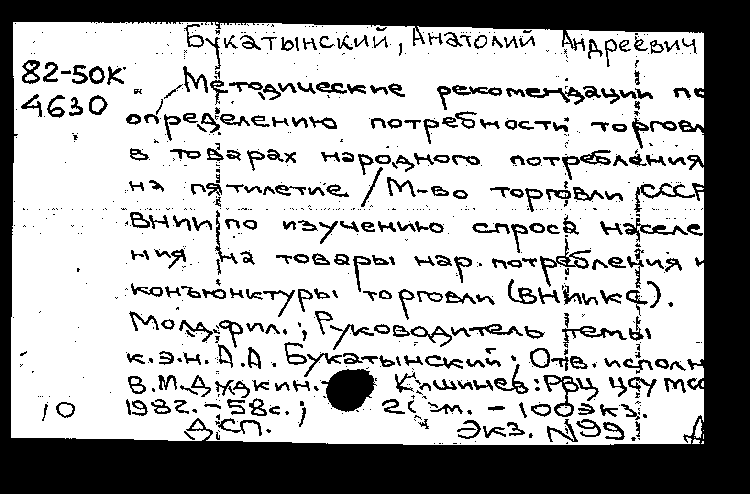 Букатынский, Анатолий Андреевич
82-50К
Методические рекомендации по
4630
определению потребности торговл
в товарах народного потребления
на пятилетие / М-во торговли СССР
ВНИИ по изучению спроса населе
ния на товары нар. потребления и
конъюнктуры торговли (ВНИИКС).
Молд. фил.; Руководитель темы
к.э.н. А.А. Букатынский; Отв. исполн
В.М. Дудкин. - Кишинев: РВЦ ЦСУ МСС
10 1982. - 58с.; 2 см. - 100экз.
ДСП. Экз. N99.